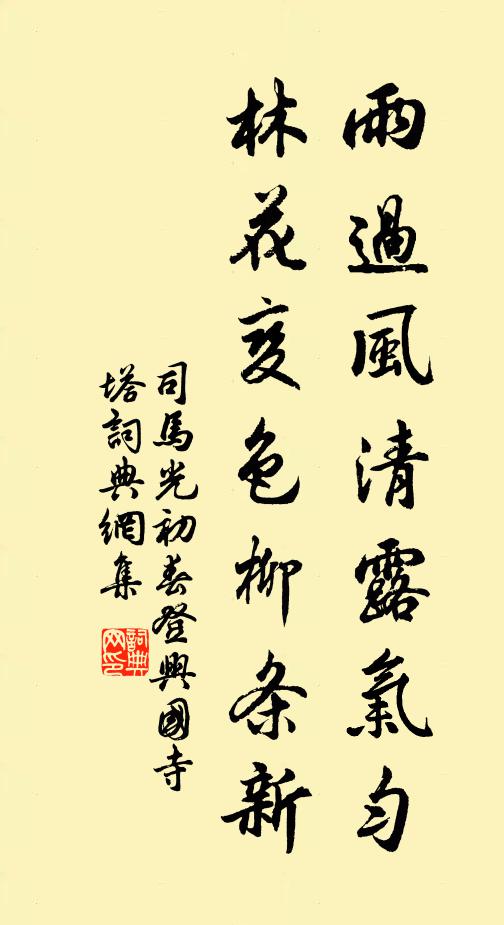 雨過風清露氣勻
林花变色柳条新
司馬光初春登興國寺
塔詞典網集
詞典网印